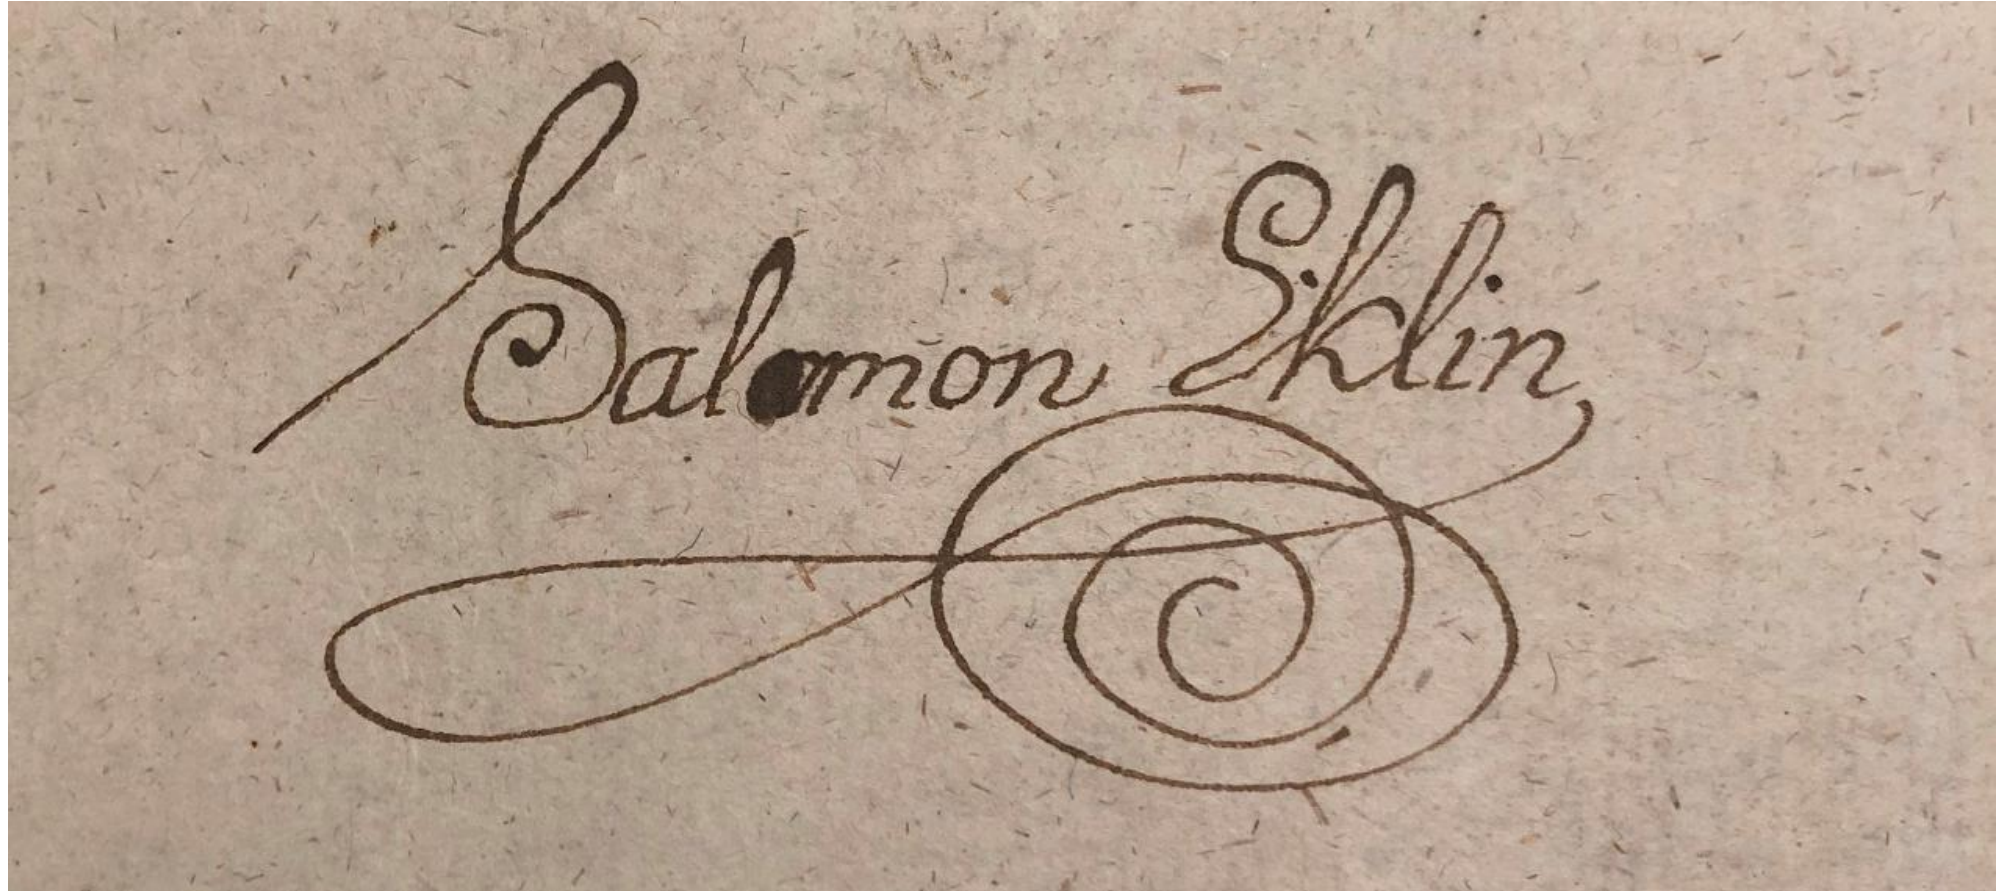 Salomon Eklin